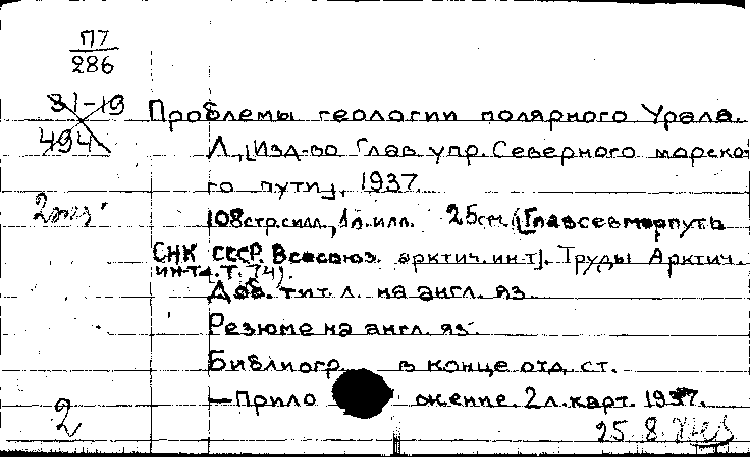 П7
286
31-19
494
Проблемы геологии полярного Урала.
Л., [Изд-во Глав. упр. Северного морско-
го пути], 1937.
2экз.
108стр.с илл., 1л.илл. 25см. ([Главсевморпуть
СНК СССР. Всесоюз. арктич. ин-т]. Труды Арктич.
ин-та. Т. 74).
Доб. тит. л. на англ. яз.
Резюме на англ. яз.
Библиогр. в конце отд. ст.
— Приложение. 2л. карт. 1937.
2
25. 8.